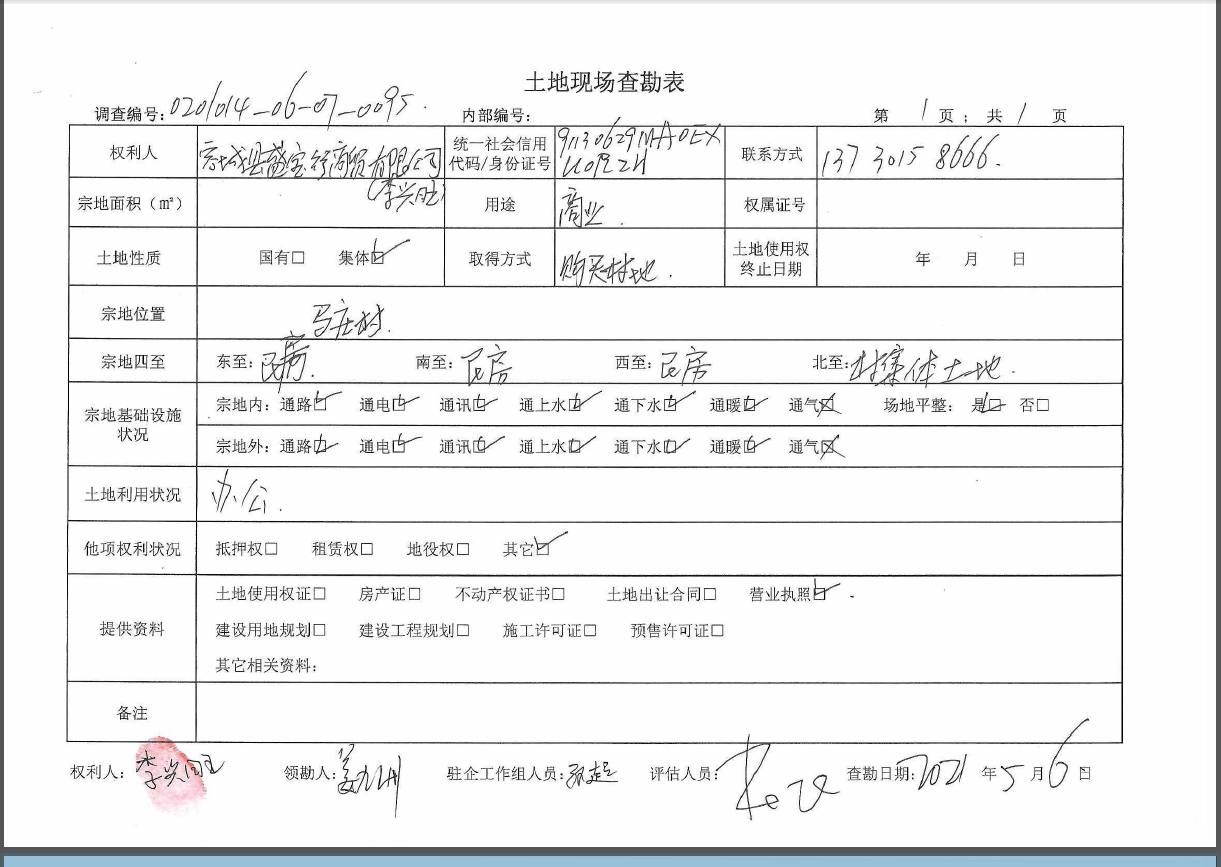 土地现场查勘表
调查编号：0201014-06-07-0095. 内部编号： 第 1 页； 共 1 页
权利人 容城县盛宝行商贸有限公司 统一社会信用代码/身份证号 联系方式 137 3015 8666.
(李兴旺)
宗地面积（㎡） 用途 商业. 权属证号
土地性质 国有□ 集体☑ 取得方式 购买村地. 土地使用权终止日期 年 月 日
宗地位置 马庄村.
宗地四至 东至：民房. 南至：民房 西至：民房 北至：村集体土地.
宗地基础设施状况 宗地内：通路☑ 通电☑ 通讯☑ 通上水☑ 通下水☑ 通暖☑ 通气☒ 场地平整： 是☑ 否□
宗地外：通路☑ 通电☑ 通讯☑ 通上水☑ 通下水☑ 通暖☑ 通气☒
土地利用状况 办公.
他项权利状况 抵押权□ 租赁权□ 地役权□ 其它☑
提供资料 土地使用权证□ 房产证□ 不动产权证书□ 土地出让合同□ 营业执照☑.
建设用地规划□ 建设工程规划□ 施工许可证□ 预售许可证□
其它相关资料：
备注
权利人：李兴旺 领勘人： 驻企工作组人员： 评估人员： 查勘日期：2021 年 5 月 6 日